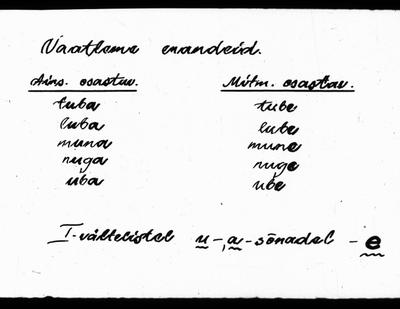 Vaatleme erandeid.
Ains. osastav. Mitm. osastav.
tuba tube
luba lube
muna mune
nuga nuge
uba ube
I-vältelistel u-,a-sõnadel - e